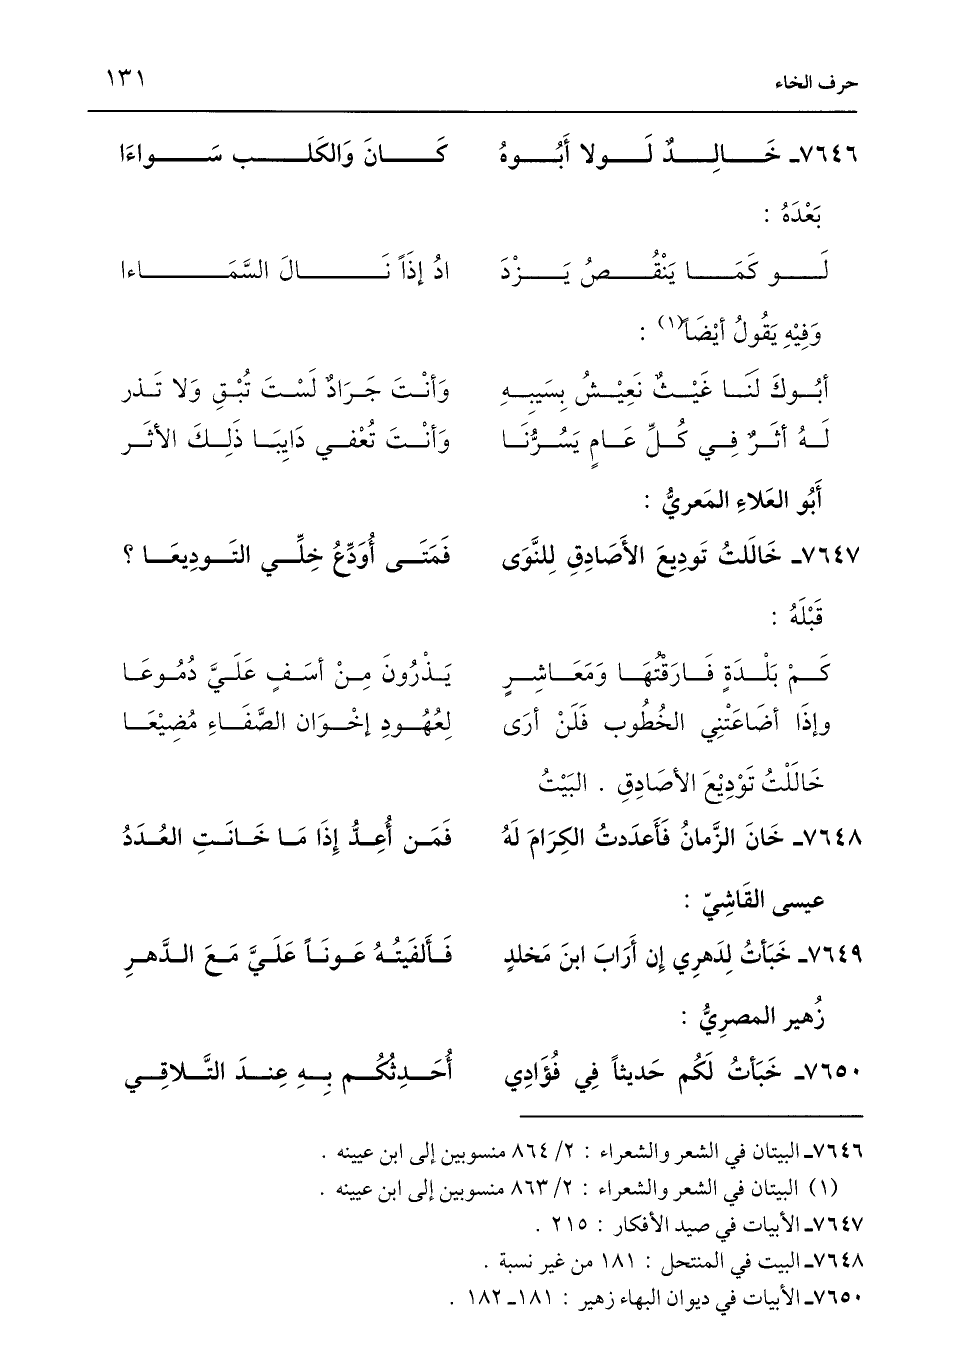 حرف الخاء ١٣١
٧٦٤٦ـ خَالِدٌ لَولا أَبُوهُ كَانَ وَالكَلبَ سَواءَا
بَعْدَهُ :
لَو كَمَا يَنْقُصُ يَزْدَ ادُ إِذَاً نَالَ السَّمَاءا
وَفِيْهِ يَقُولُ أَيْضَاً(١) :
أَبُوكَ لَنَا غَيْثٌ نَعِيْشُ بِسَيبِهِ وَأَنْتَ جَرَادٌ لَسْتَ تُبْقِ وَلا تَذر
لَهُ أَثَرٌ فِي كُلِّ عَامٍ يَسُرُّنَا وَأَنْتَ تُعْفي دَايِبَا ذَلِكَ الأَثَر
أَبُو العَلاءِ المَعريُّ :
٧٦٤٧ـ خَالَلتُ تَودِيعَ الأَصَادِقِ لِلنَّوَى فَمَتَى أُوَدِّعُ خِلِّي التَودِيعَا ؟
قَبْلَهُ :
كَمْ بَلْدَةٍ فَارَقْتُهَا وَمَعَاشِرٍ يَذْرُونَ مِنْ أَسَفٍ عَلَيَّ دُمُوعَا
وإِذَا أضَاعَتْنِي الخُطُوب فَلَنْ أرَى لِعُهُودِ إخْوَان الصَّفَاءِ مُضِيْعَا
خَالَلْتُ تَوْدِيْعَ الأصَادِقِ . البَيْتُ
٧٦٤٨ـ خَانَ الزَّمانُ فَأَعدَدتُ الكِرَامَ لَهُ فَمَن أُعِدُّ إِذَا مَا خَانَتِ العُدَدُ
عيسى القَاشِيّ :
٧٦٤٩ـ خَبَأتُ لِدَهرِي إِن أَرَابَ ابنَ مَخلدٍ فَأَلفَيتُهُ عَونَاً عَلَيَّ مَعَ الدَّهرِ
زُهير المصرِيُّ :
٧٦٥٠ـ خَبَأتُ لَكُم حَديثاً فِي فُؤَادِي أُحَدِثُكُم بِهِ عِندَ التَّلاقِي
٧٦٤٦ـ البيتان في الشعر والشعراء : ٢/ ٨٦٤ منسوبين إلى ابن عيينه .
(١) البيتان في الشعر والشعراء : ٢/ ٨٦٣ منسوبين إلى ابن عيينه .
٧٦٤٧ـ الأبيات في صيد الأفكار : ٢١٥ .
٧٦٤٨ـ البيت في المنتحل : ١٨١ من غير نسبة .
٧٦٥٠ـ الأبيات في ديوان البهاء زهير : ١٨١ـ ١٨٢ .